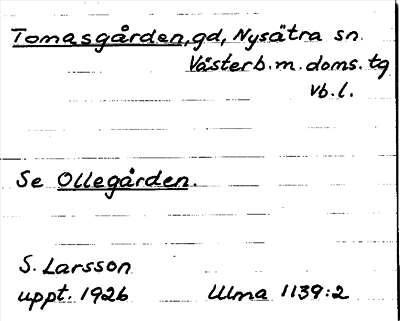 Tomasgården, gd, Nysätra sn.
Västerb. m. doms. tg
Vb. l.
Se Ollegården.
S. Larsson
uppt. 1926 Ulma 1139:2